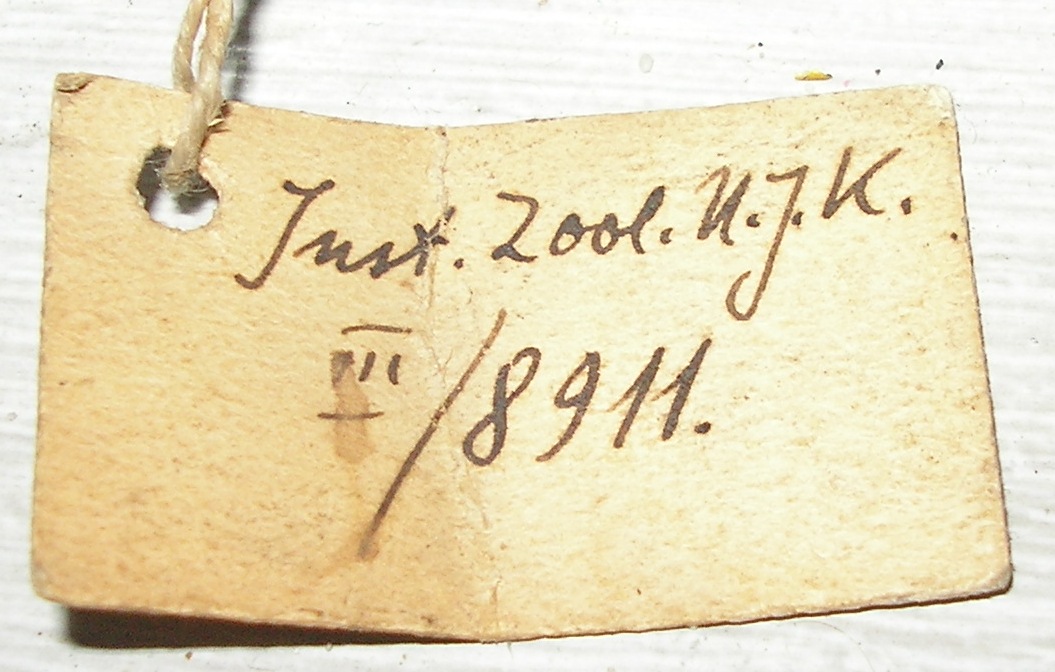 Inst. Zool. U.J.K.
III/8911.